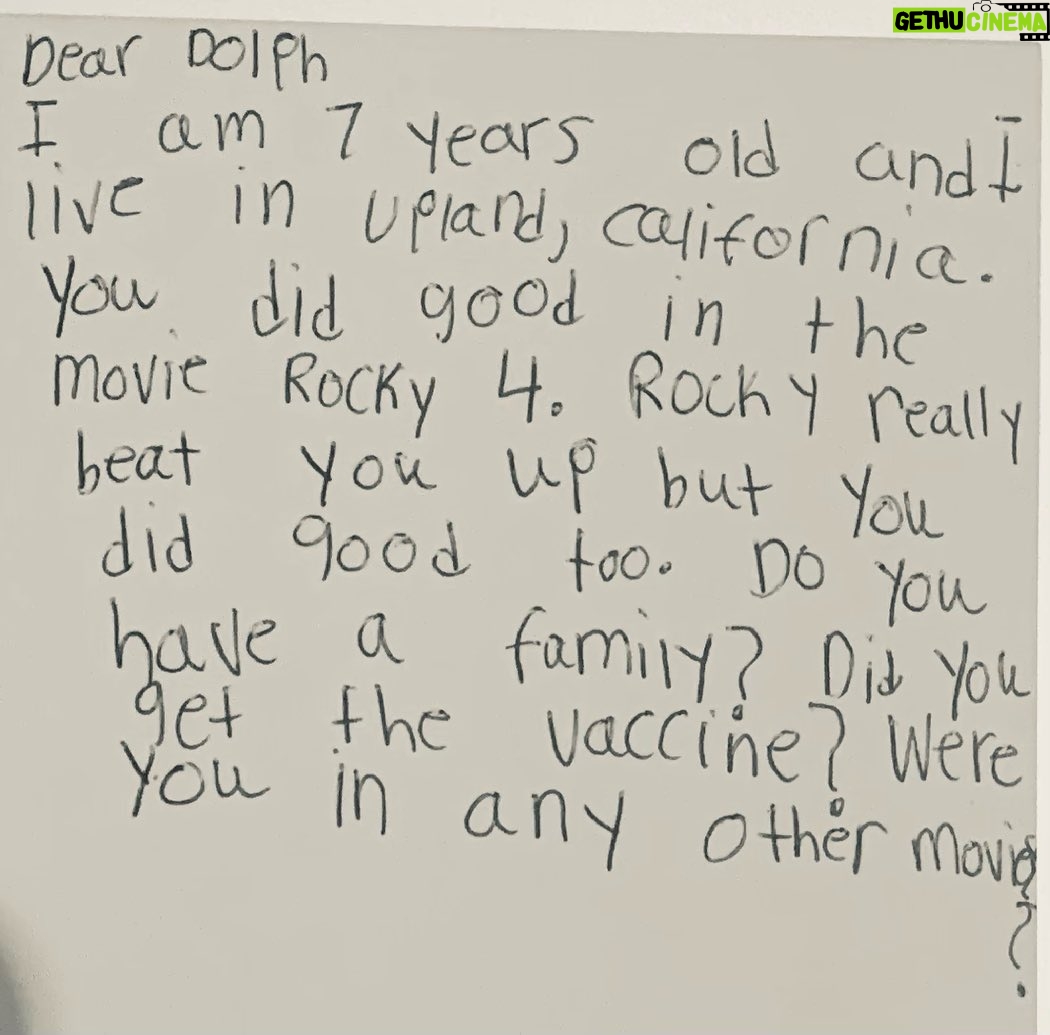 GETHUCINEMA
Dear Dolph
I am 7 years old and I
live in upland, california.
You did good in the
movie Rocky 4. Rocky really
beat you up but you
did good too. Do you
have a family? Did you
get the vaccine? Were
you in any other movies
?